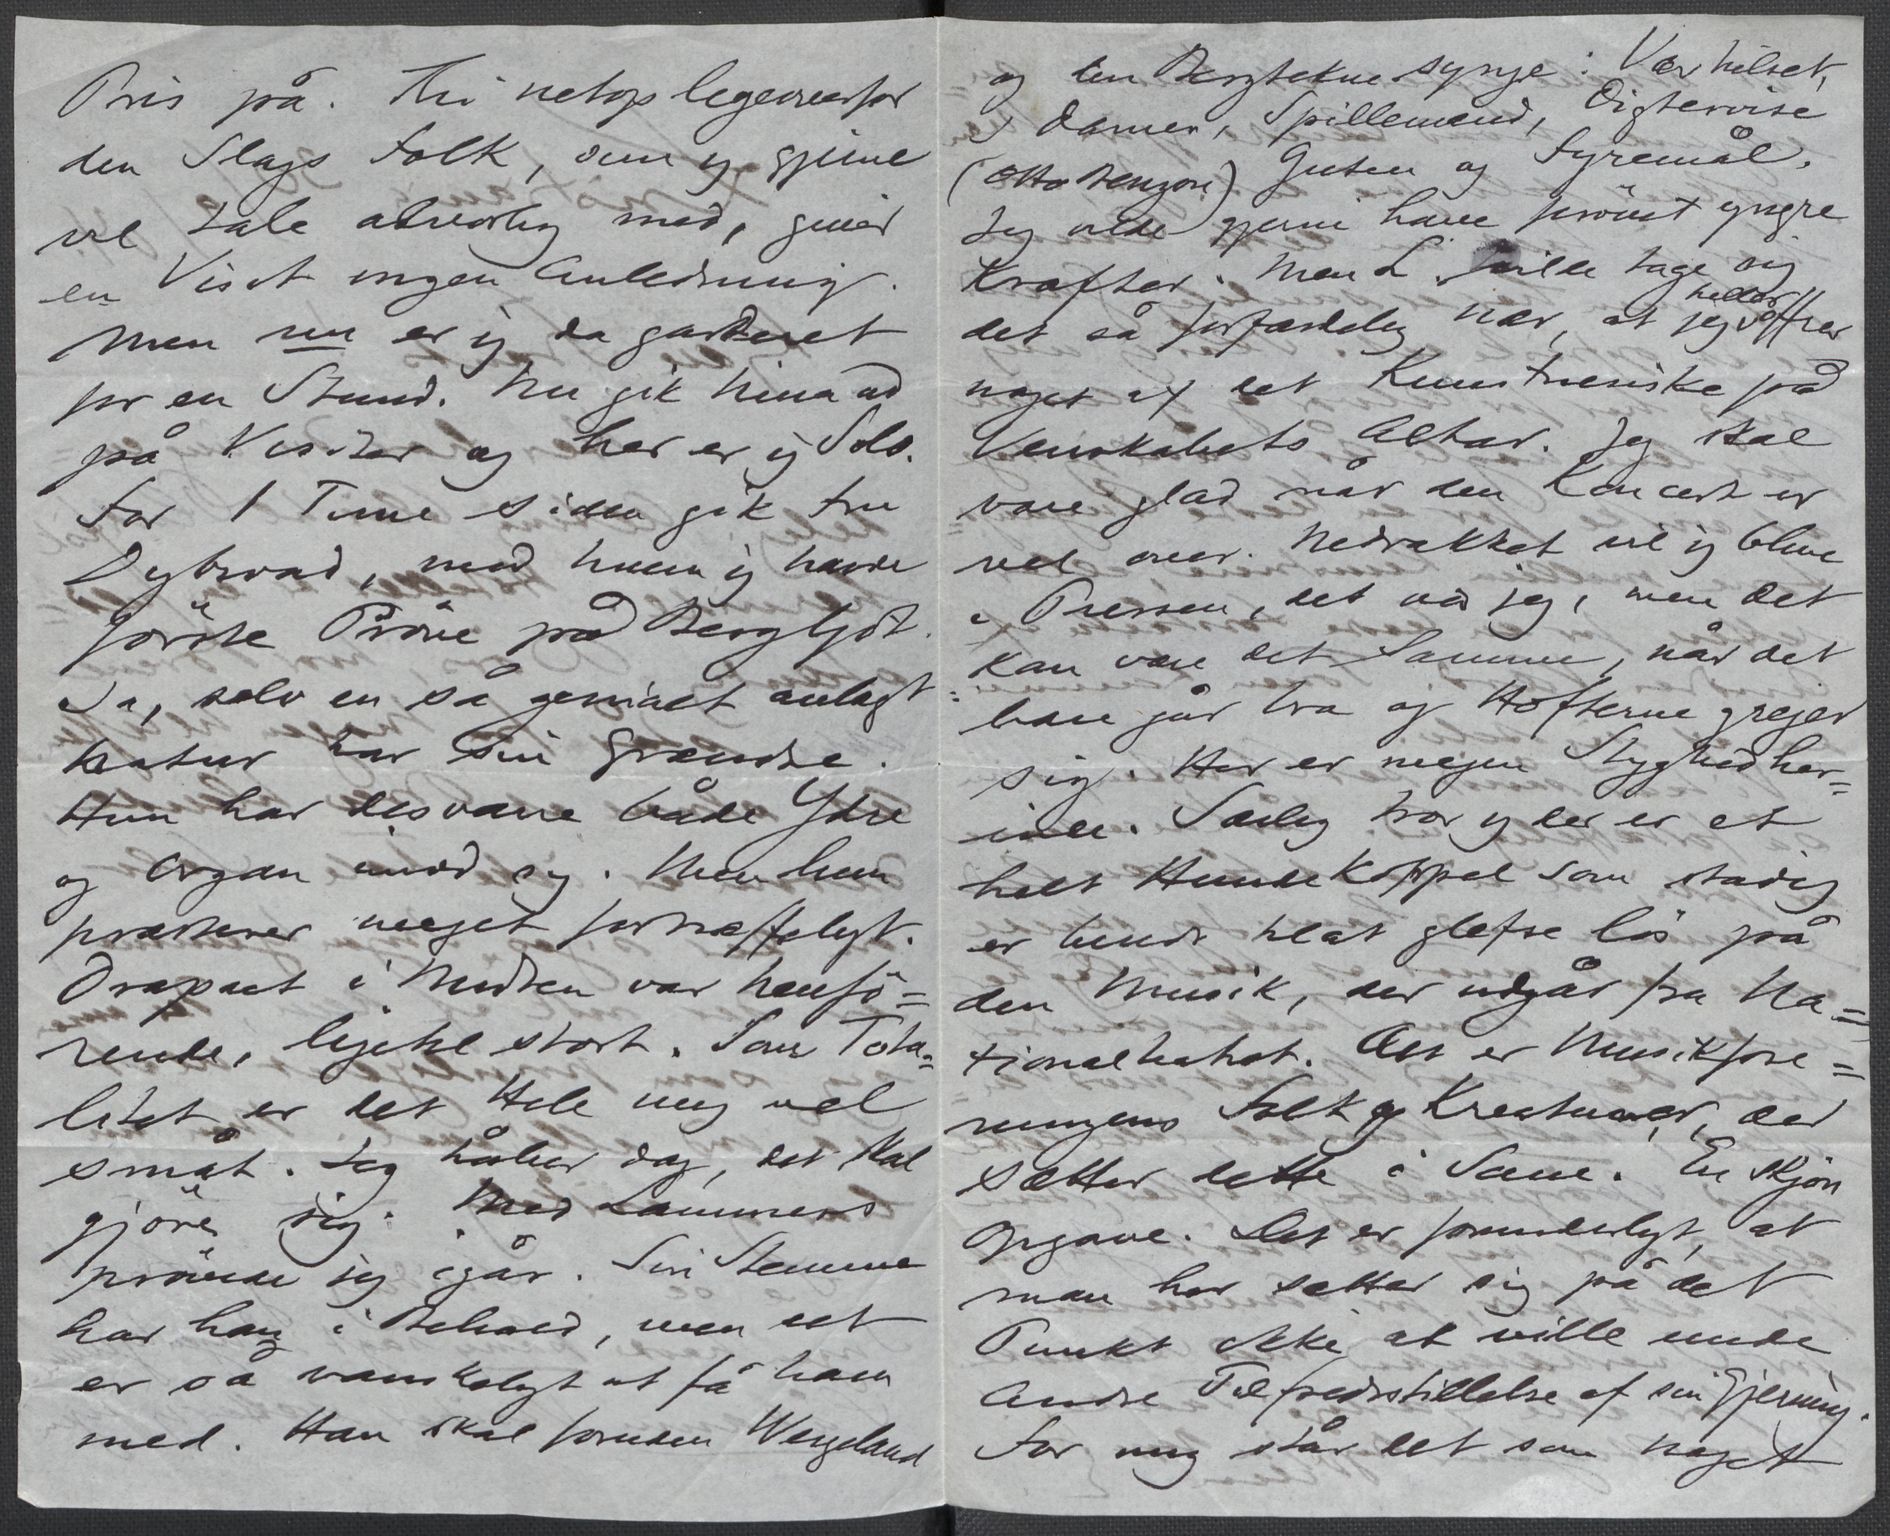 Pris på. Thi netop ligeoverfor
den Slags Folk, som jeg gjerne
vil tale alvorlig med, giver
en Visit ingen Anledning.
Men nu er jeg da garderet
for en Stund. Nu gik Nina ud
på Visiter og her er jeg Solo.
For 1 Time siden gik Fru
Dybwad, med hvem jeg havde
første Prøve på Bergljot.
Ja, selv en så genialt anlagt
Natur har sin Grændse.
Hun har desværre både Ydre
og Organ imod sig. Men hun
præsterer meget fortræffeligt.
Drapaet i Midten var henfø=
rende, ligetil stort. Som Tota=
litet er det Hele mig vel
småt. Jeg håber dog, det skal
gjøre sig. Med Lammers
prøvede jeg igår. Sin Stemme
har han i Behold, men det
er så vanskeligt at få ham
med. Han skal foruden Wergeland
og den Bergtekne synge: Vær hilset,
I Damer, Spillemænd, Digtervise
(Otto Benzon) Guten og Fyremål.
Jeg vilde gjerne have prøvet yngre
Kræfter. Men L. vilde tage sig
det så forfærdelig nær, at jeg heller offrer
noget af det Kunstneriske på
Venskabets Altar. Jeg skal
være glad når den Koncert er
vel over. Nedrakket vil jeg blive
i Pressen, det ved jeg, men det
kan være det Samme, når det
bare går bra og Hofterne greier
sig. Her er megen Styghed her=
inde. Særlig tror jeg der er et
helt Hundekoppel som stadig
er hidset til at glefse løs på
den Musik, der udgår fra Na=
tionaltheatret. Det er Musikfore=
ningens Folk og Kreaturer, der
sætter dette i Scene. En skjøn
Opgave. Det er forunderligt, at
man her sætter sig på det
Punkt ikke at ville unde
Andre Tilfredsstillelse af sin Gjerning.
For mig står det som noget